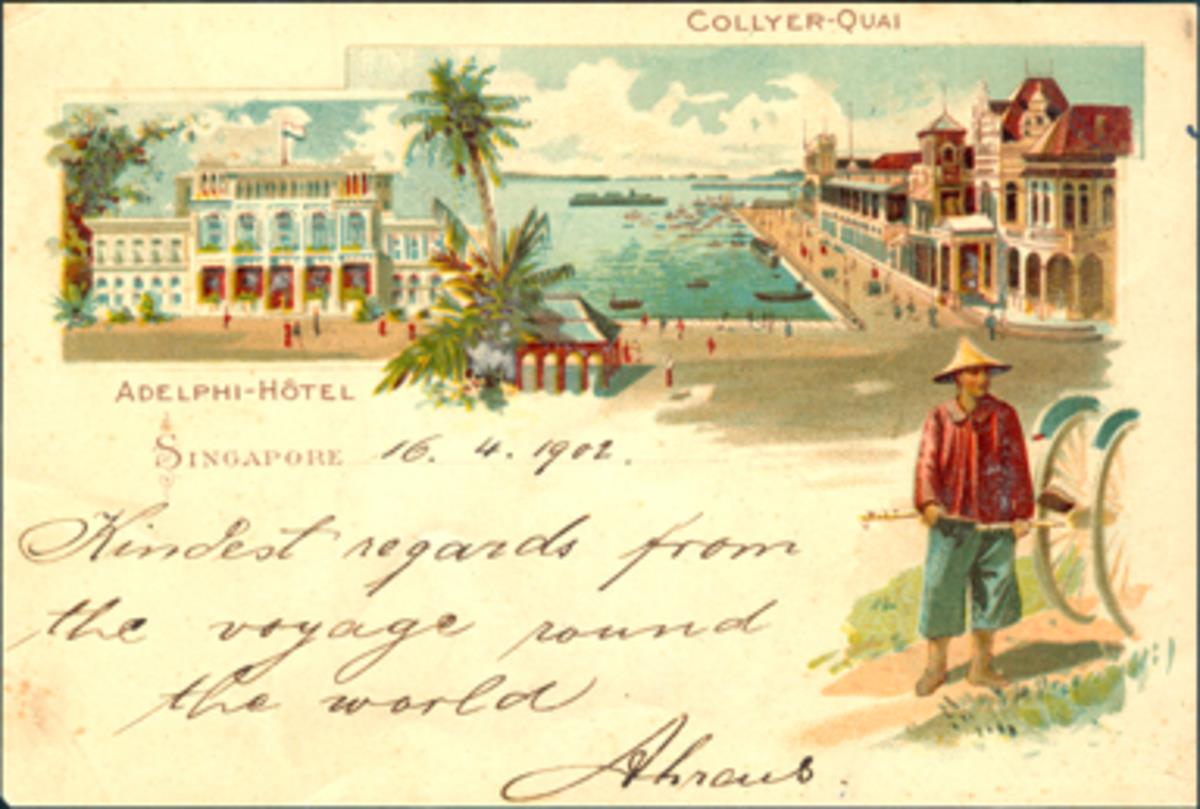 COLLYER-QUAI
ADELPHI-HÔTEL
SINGAPORE 16. 4. 1902.
Kindest regards from
the voyage round
the world.
Ahrens.